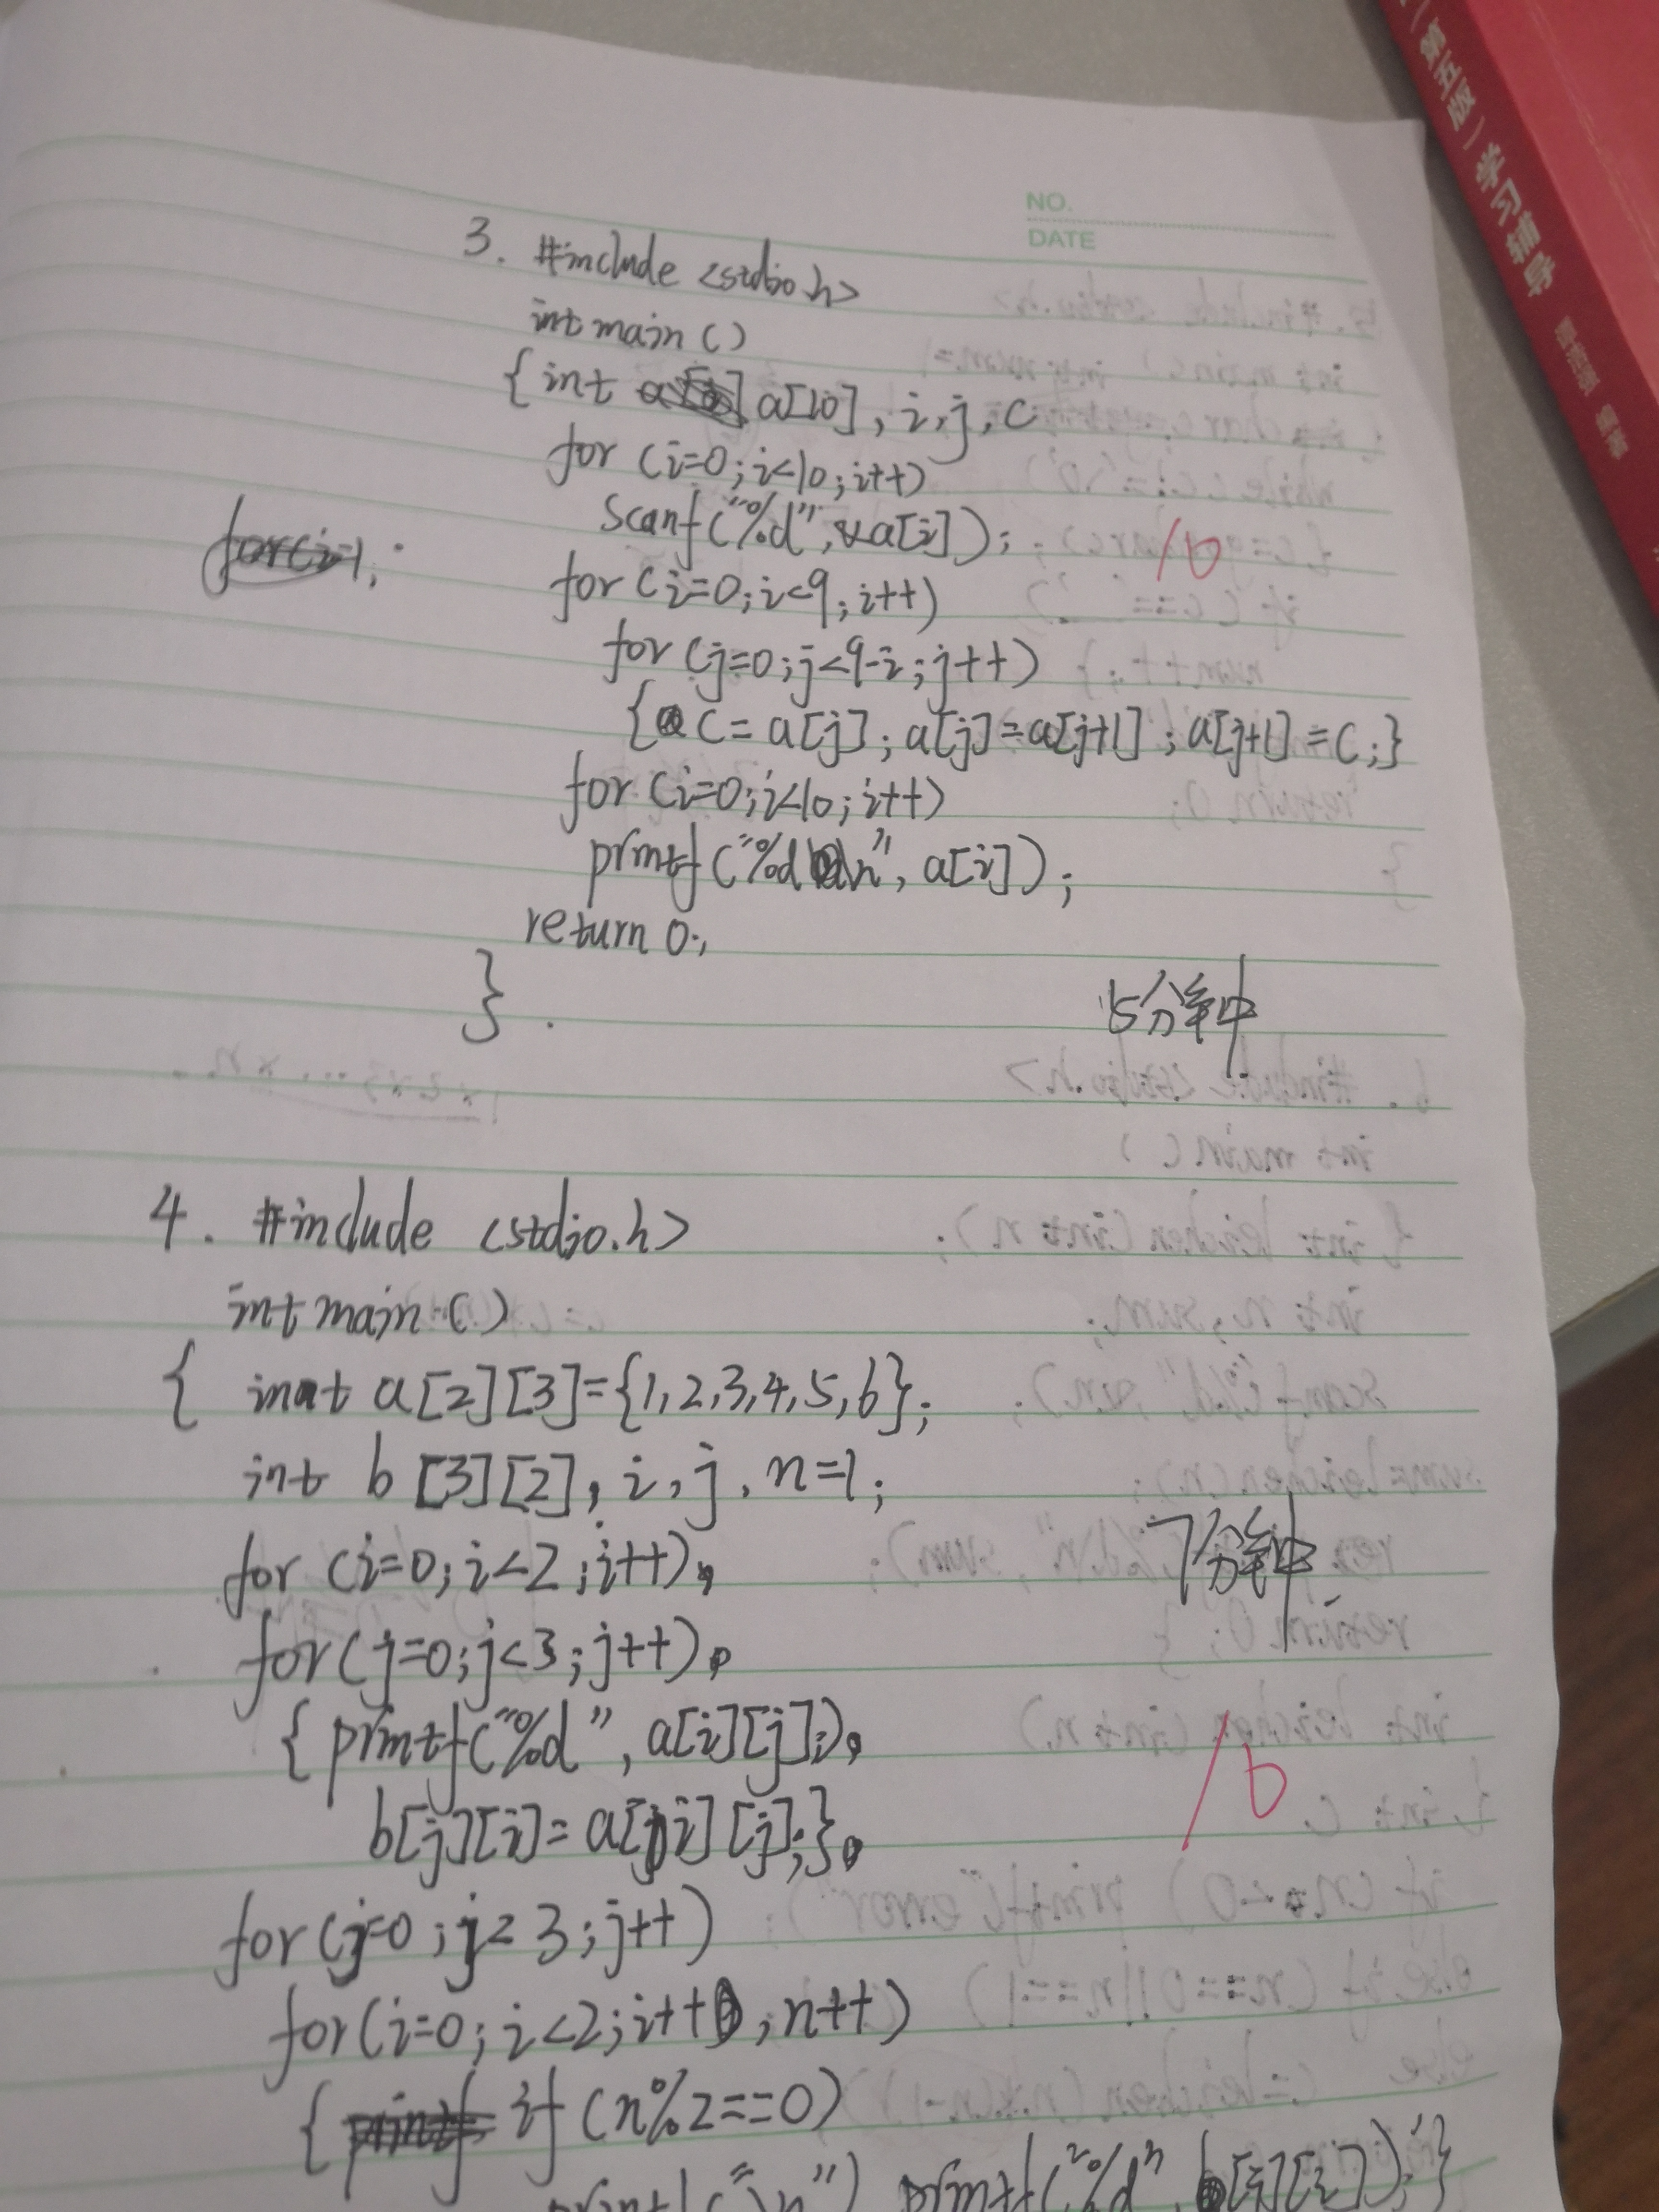 (第五版) 学习辅导
NO.
DATE
3. #include <stdio.h>
int main ()
{ int a[10], i, j, c
for (i=0; i<10; i++)
scanf("%d", &a[i]);
10
for (i=0; i<9; i++)
for (j=0; j<9-i; j++)
{ c = a[j]; a[j]=a[j+1]; a[j+1]=c;}
for (i=0; i<10; i++)
printf("%d\n", a[i]);
return 0;
}
15分钟
4. #include <stdio.h>
int main ()
{ int a[2][3]={1,2,3,4,5,6};
int b [3][2], i, j, n=1;
7分钟
for (i=0; i<2; i++)
for (j=0; j<3; j++)
{ printf("%d", a[i][j]);
b[j][i]= a[i][j];}
for (j=0; j<3; j++)
for (i=0; i<2; i++, n++)
{ if (n%2==0)
printf("\n") printf("%d", b[j][i]);}